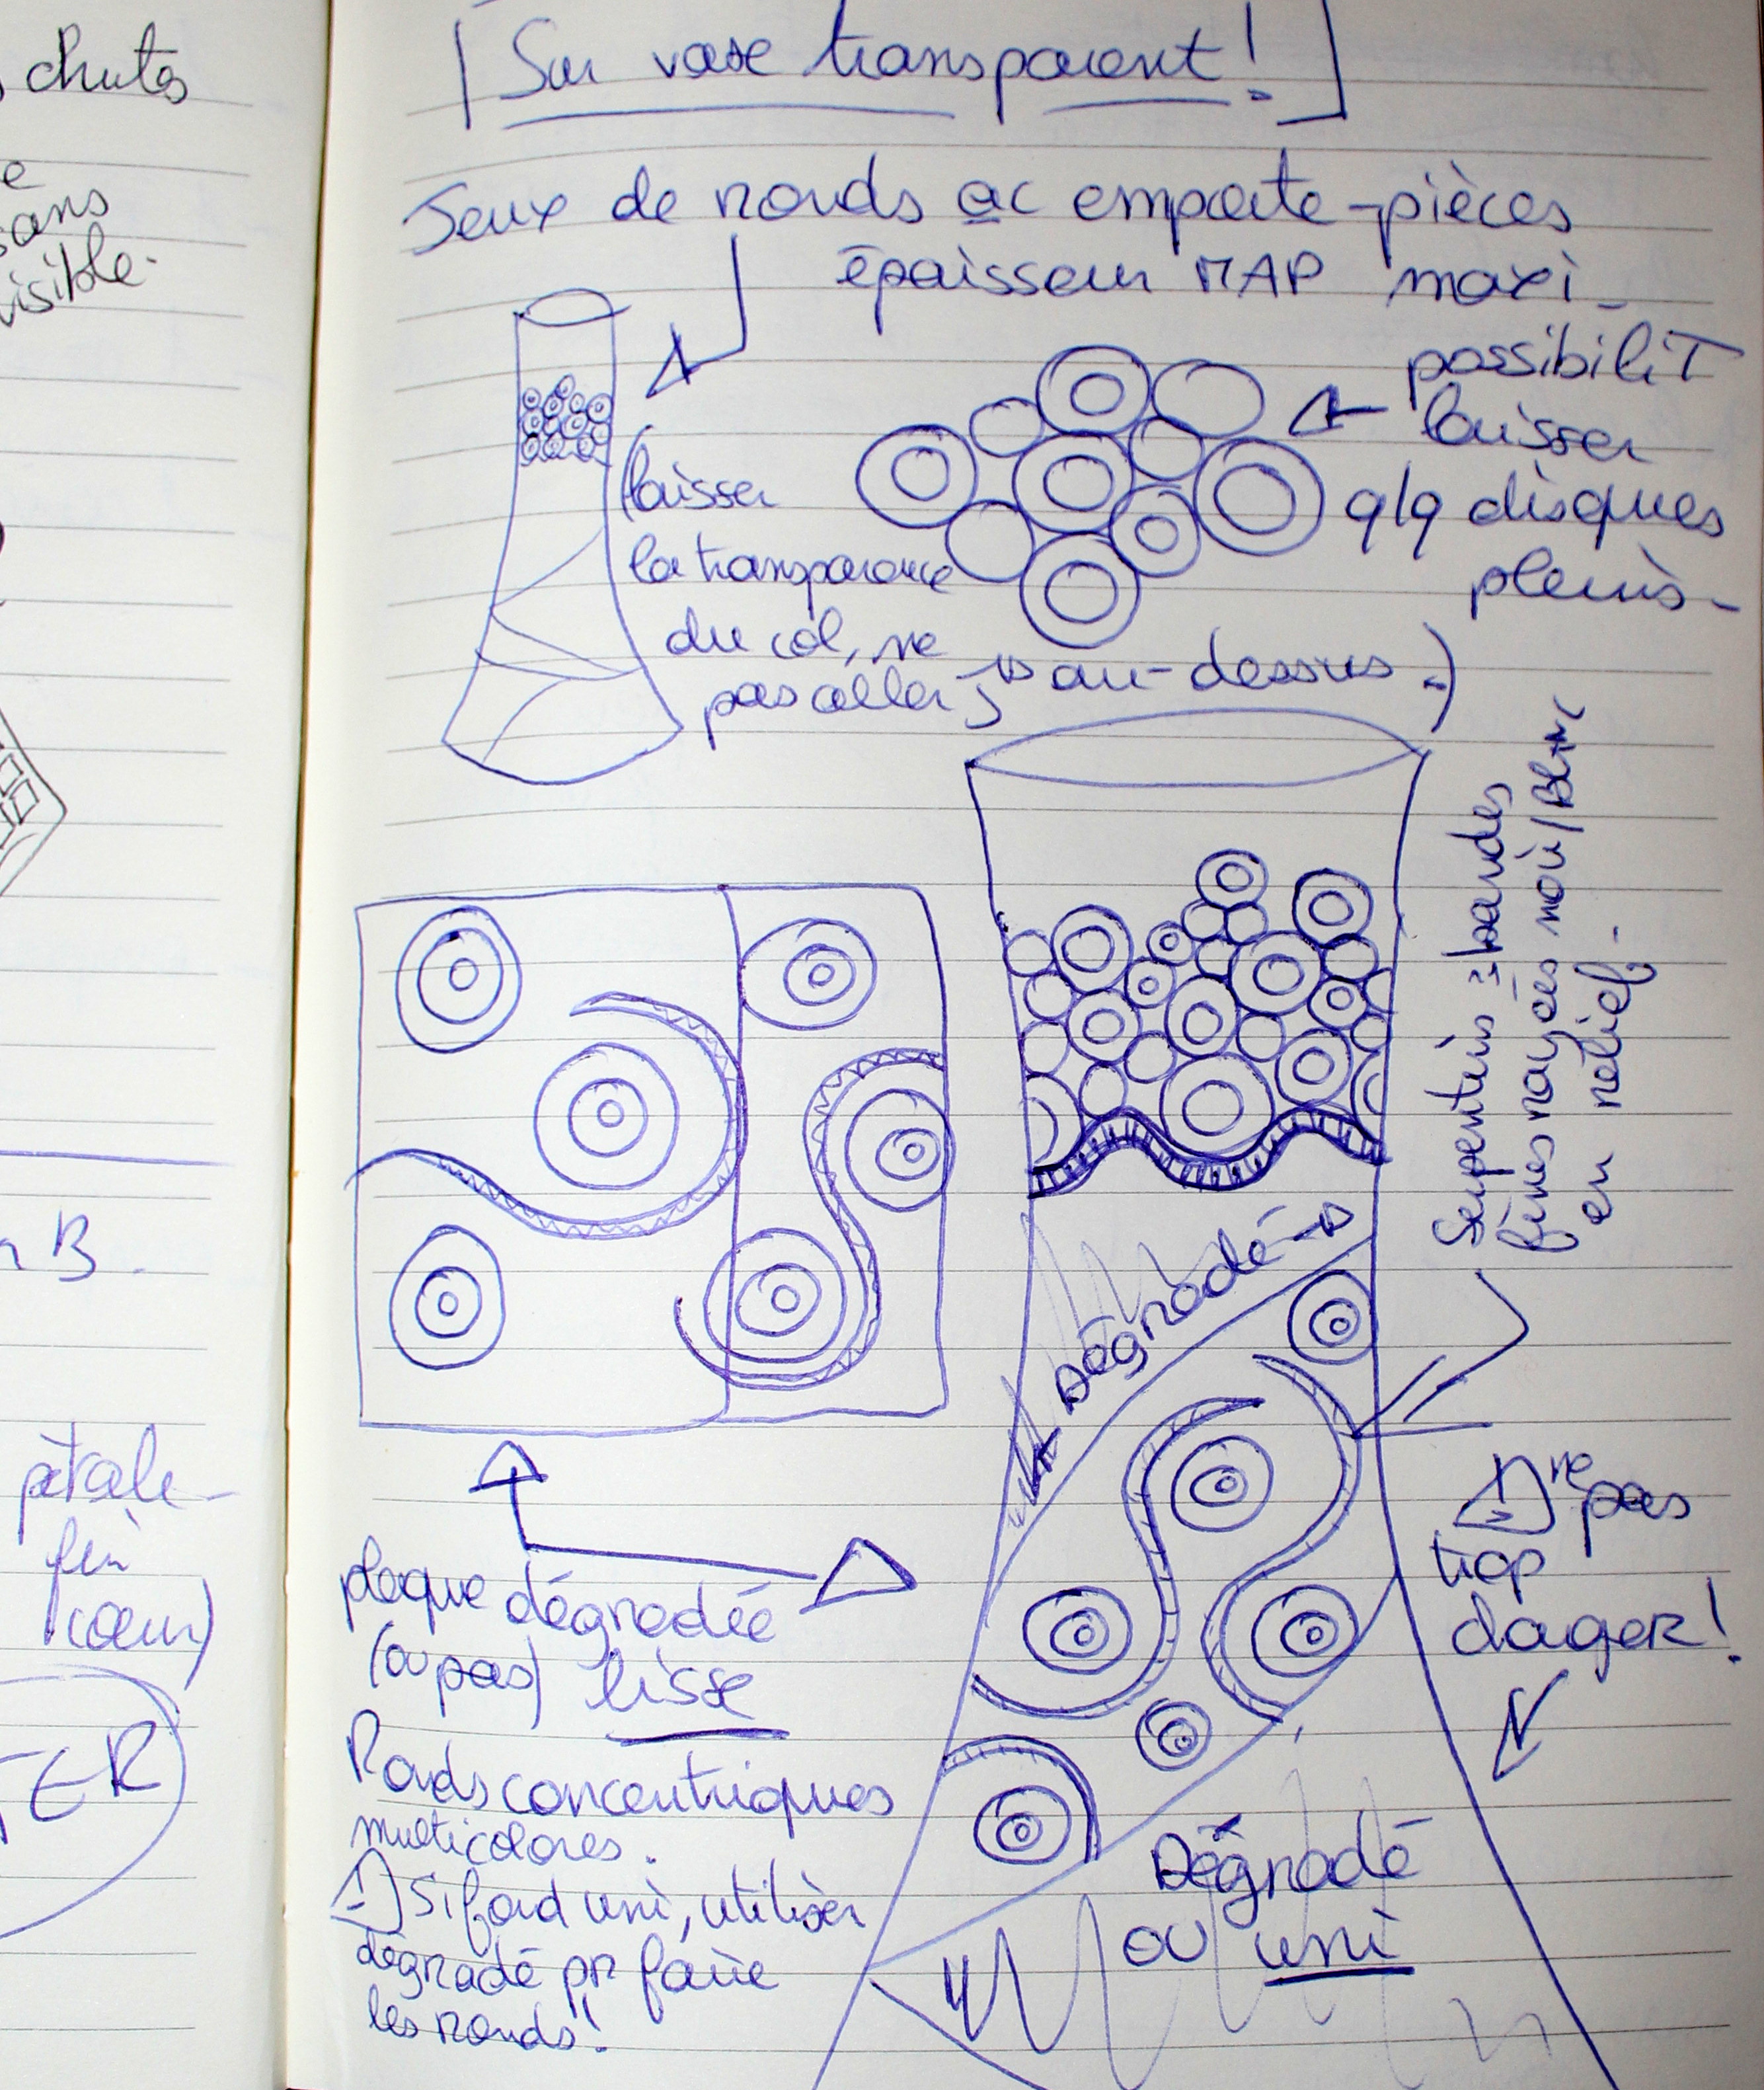 chutes
e
sans
visible.
n B.
pétale
fin
cœur)
TER
[Sur vase transparent!]
Jeux de ronds ac emporte-pièces
épaisseur MAP maxi-
possibiliT
laisser
q/q disques
pleins-
(laisser
la transparence
du col, ne
pas aller au-dessus.)
Serpentins = bandes
fines rayées noir/Blanc
en relief.
Dégradé
ne pas
trop
charger!
plaque dégradée
(ou pas) lisse
Ronds concentriques
multicolores.
Si fond uni, utiliser
dégradé pr faire
les ronds!
Dégradé
ou uni